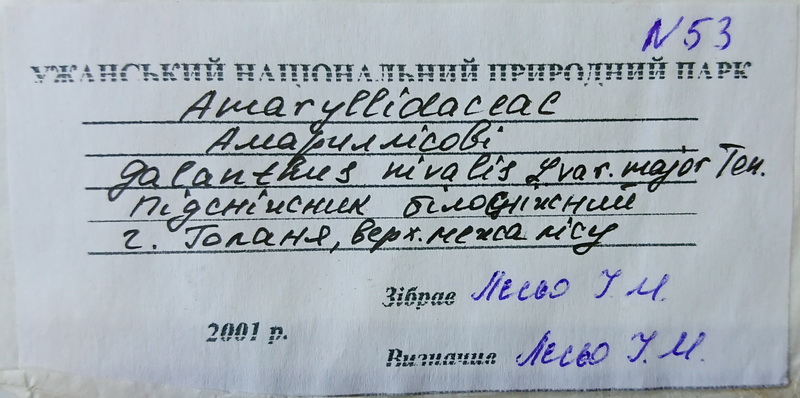 N53
УЖАНСЬКИЙ НАЦІОНАЛЬНИЙ ПРИРОДНИЙ ПАРК
Amaryllidaceae
Амариллісові
Galanthus nivalis L var. major Ten.
Підсніжник білосніжний
г. Гопаня, верх. межа лісу
Зібрав Лесьо І. М.
2001 р.
Визначив Лесьо І. М.